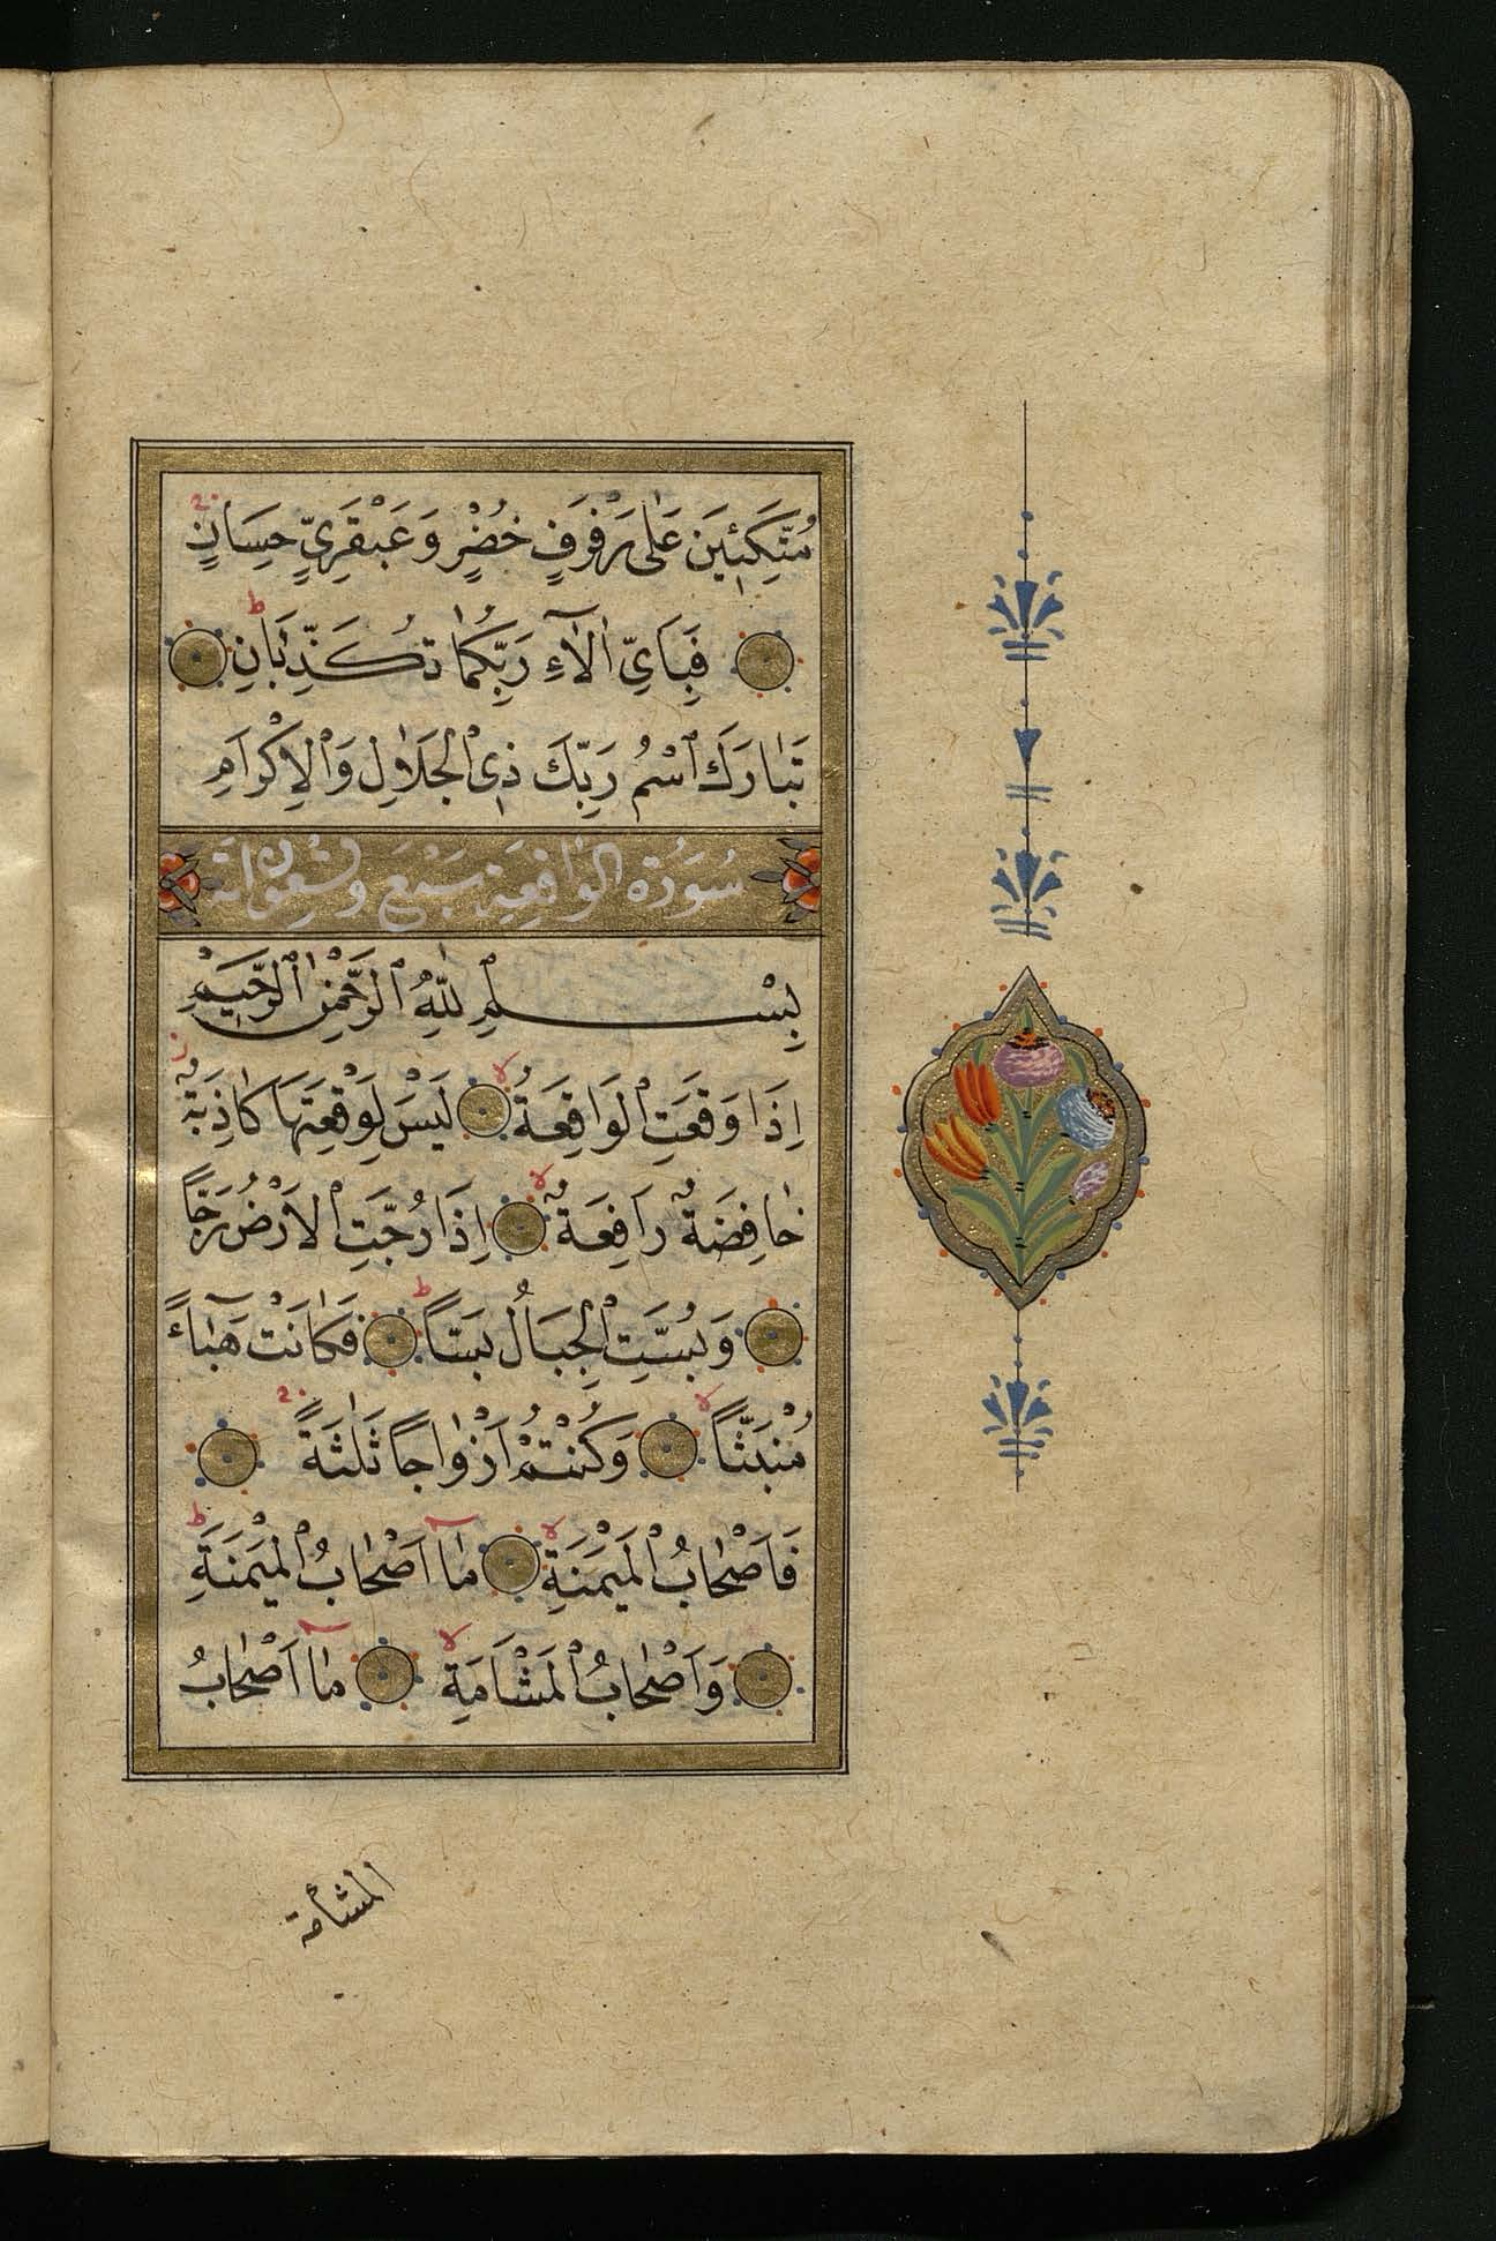 مُتَّكِئِينَ عَلٰى رَفْرَفٍ خُضْرٍ وَعَبْقَرِيٍّ حِسَانٍ
فَبِاَيِّ اٰلَاۤءِ رَبِّكُمَا تُكَذِّبَانِ
تَبَارَكَ اسْمُ رَبِّكَ ذِي الْجَلَالِ وَالْاِكْرَامِ
سُورَةُ الْوَاقِعَةِ سَبْعَ وَتِسْعُونَ اٰيَة
بِسْمِ اللّٰهِ الرَّحْمٰنِ الرَّحِيمِ
اِذَا وَقَعَتِ الْوَاقِعَةُ لَيْسَ لِوَقْعَتِهَا كَاذِبَةٌ
خَافِضَةٌ رَافِعَةٌ اِذَا رُجَّتِ الْاَرْضُ رَجًّا
وَبُسَّتِ الْجِبَالُ بَسًّا فَكَانَتْ هَبَاۤءً
مُنْبَثًّا وَكُنْتُمْ اَزْوَاجًا ثَلٰثَةً
فَاَصْحَابُ الْمَيْمَنَةِ مَاۤ اَصْحَابُ الْمَيْمَنَةِ
وَاَصْحَابُ الْمَشْاَمَةِ مَاۤ اَصْحَابُ
المشأمة